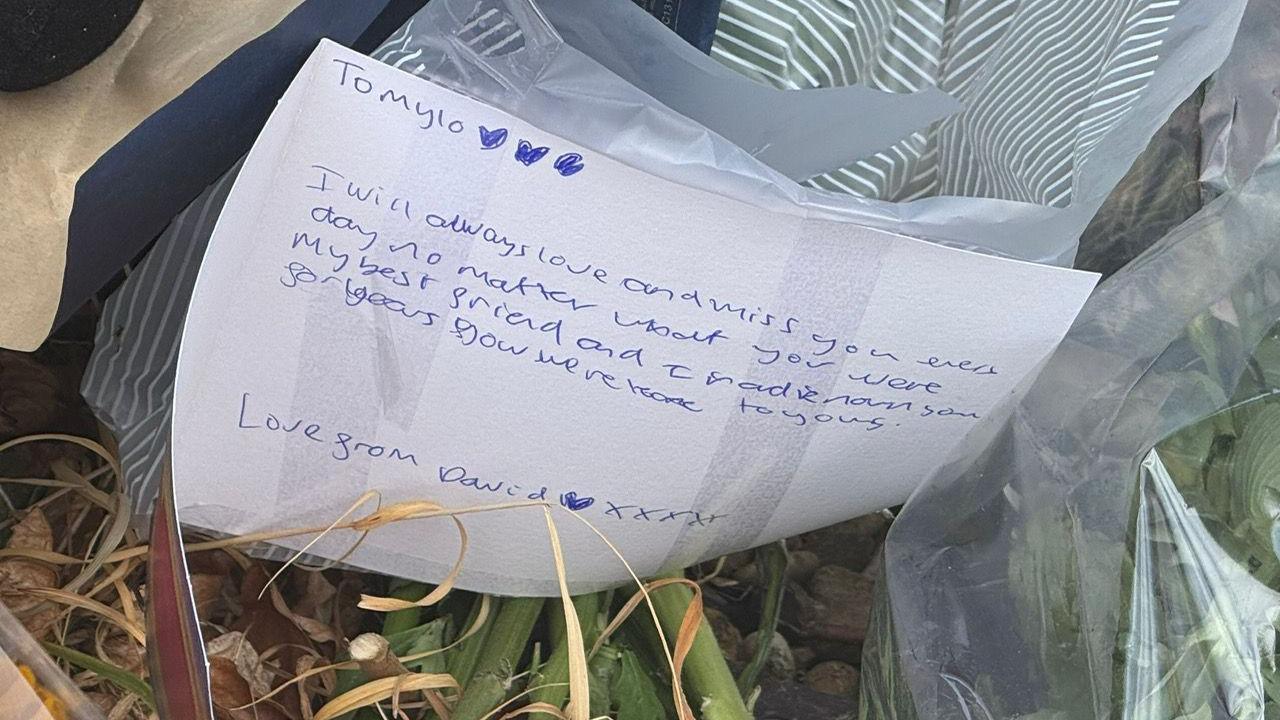 To Mylo
I will always love and miss you every
day no matter what you were
My best friend and I
gorgeous you were to yours.
Love from David xxxxx